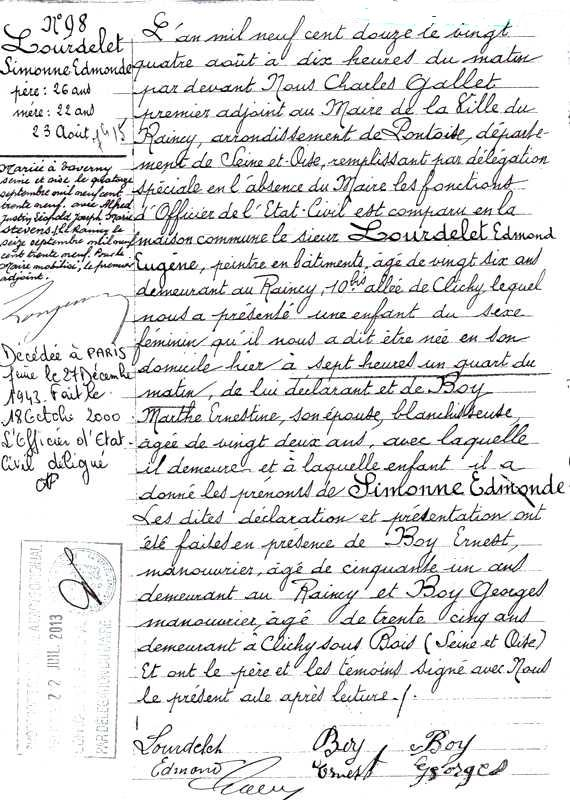 N°98
Lourdelet
Simonne Edmonde
père: 26 ans
mère: 22 ans
23 Août
Mariée à Taverny
Seine et Oise le quatorze
septembre mil neuf cent
trente neuf, avec Alfred
Justin Léopold Joseph Marie
STEVENS. Le Raincy le
seize septembre mil neuf
cent trente neuf. Pour le
Maire mobilisé, le premier
adjoint.
Décédée à PARIS
le 27 Décembre
1943. Fait le
18 Octobre 2000
L'Officier d'Etat-
Civil délégué
L'an mil neuf cent douze le vingt
quatre août à dix heures du matin
par devant Nous Charles Gallet
premier adjoint au Maire de la Ville du
Raincy, arrondissement de Pontoise, départe-
ment de Seine et Oise, remplissant par délégation
spéciale en l'absence du Maire les fonctions
d'Officier de l'Etat-Civil est comparu en la
maison commune le sieur Lourdelet Edmond
Eugène, peintre en bâtiments, âgé de vingt six ans
demeurant au Raincy, 10bis allée de Clichy, lequel
nous a présenté une enfant du sexe
féminin qu'il nous a dit être née en son
domicile hier à sept heures un quart du
matin, de lui déclarant et de Boy
Marthe Ernestine, son épouse, blanchisseuse,
âgée de vingt deux ans, avec laquelle
il demeure et à laquelle enfant il a
donné les prénoms de Simonne Edmonde
Les dites déclaration et présentation ont
été faites en présence de Boy Ernest,
manouvrier, âgé de cinquante un ans
demeurant au Raincy et Boy Georges
manouvrier, âgé de trente cinq ans
demeurant à Clichy sous Bois (Seine et Oise)
Et ont le père et les témoins signé avec Nous
le présent acte après lecture./.
22 JUIL. 2013
PAR DELEGATION DU MAIRE
Lourdelet Boy Boy
Edmond Ernest Georges